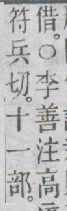 借。○李善注高
符兵切。十一部。